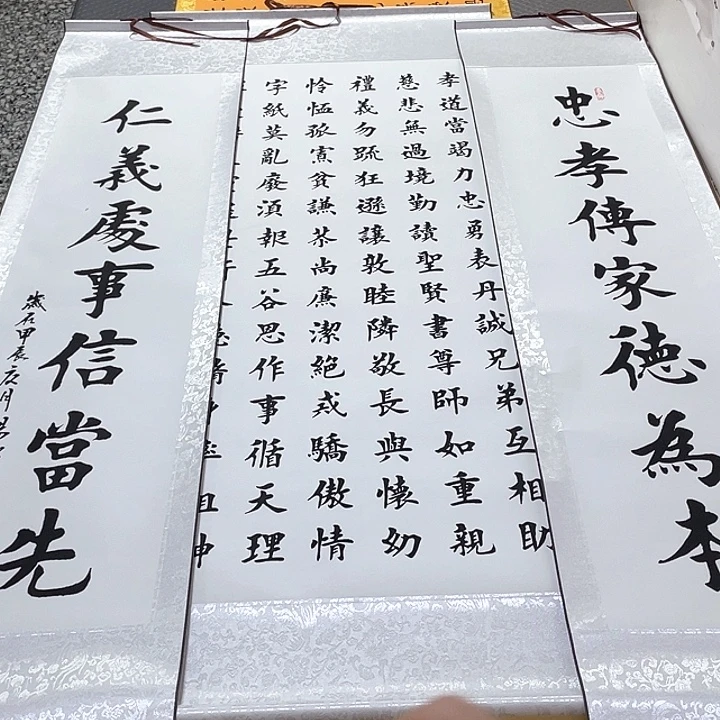 忠孝傳家德為本
孝道當竭力忠勇表丹誠兄弟互相助
慈悲無過境勤讀聖賢書尊師如重親
禮義勿疏狂遜讓敦睦隣敬長與懷幼
怜恤孤寡貧謙恭尚廉潔絕戒驕傲情
字紙莫亂廢須報五谷恩作事循天理
仁義處事信當先
歲在甲辰